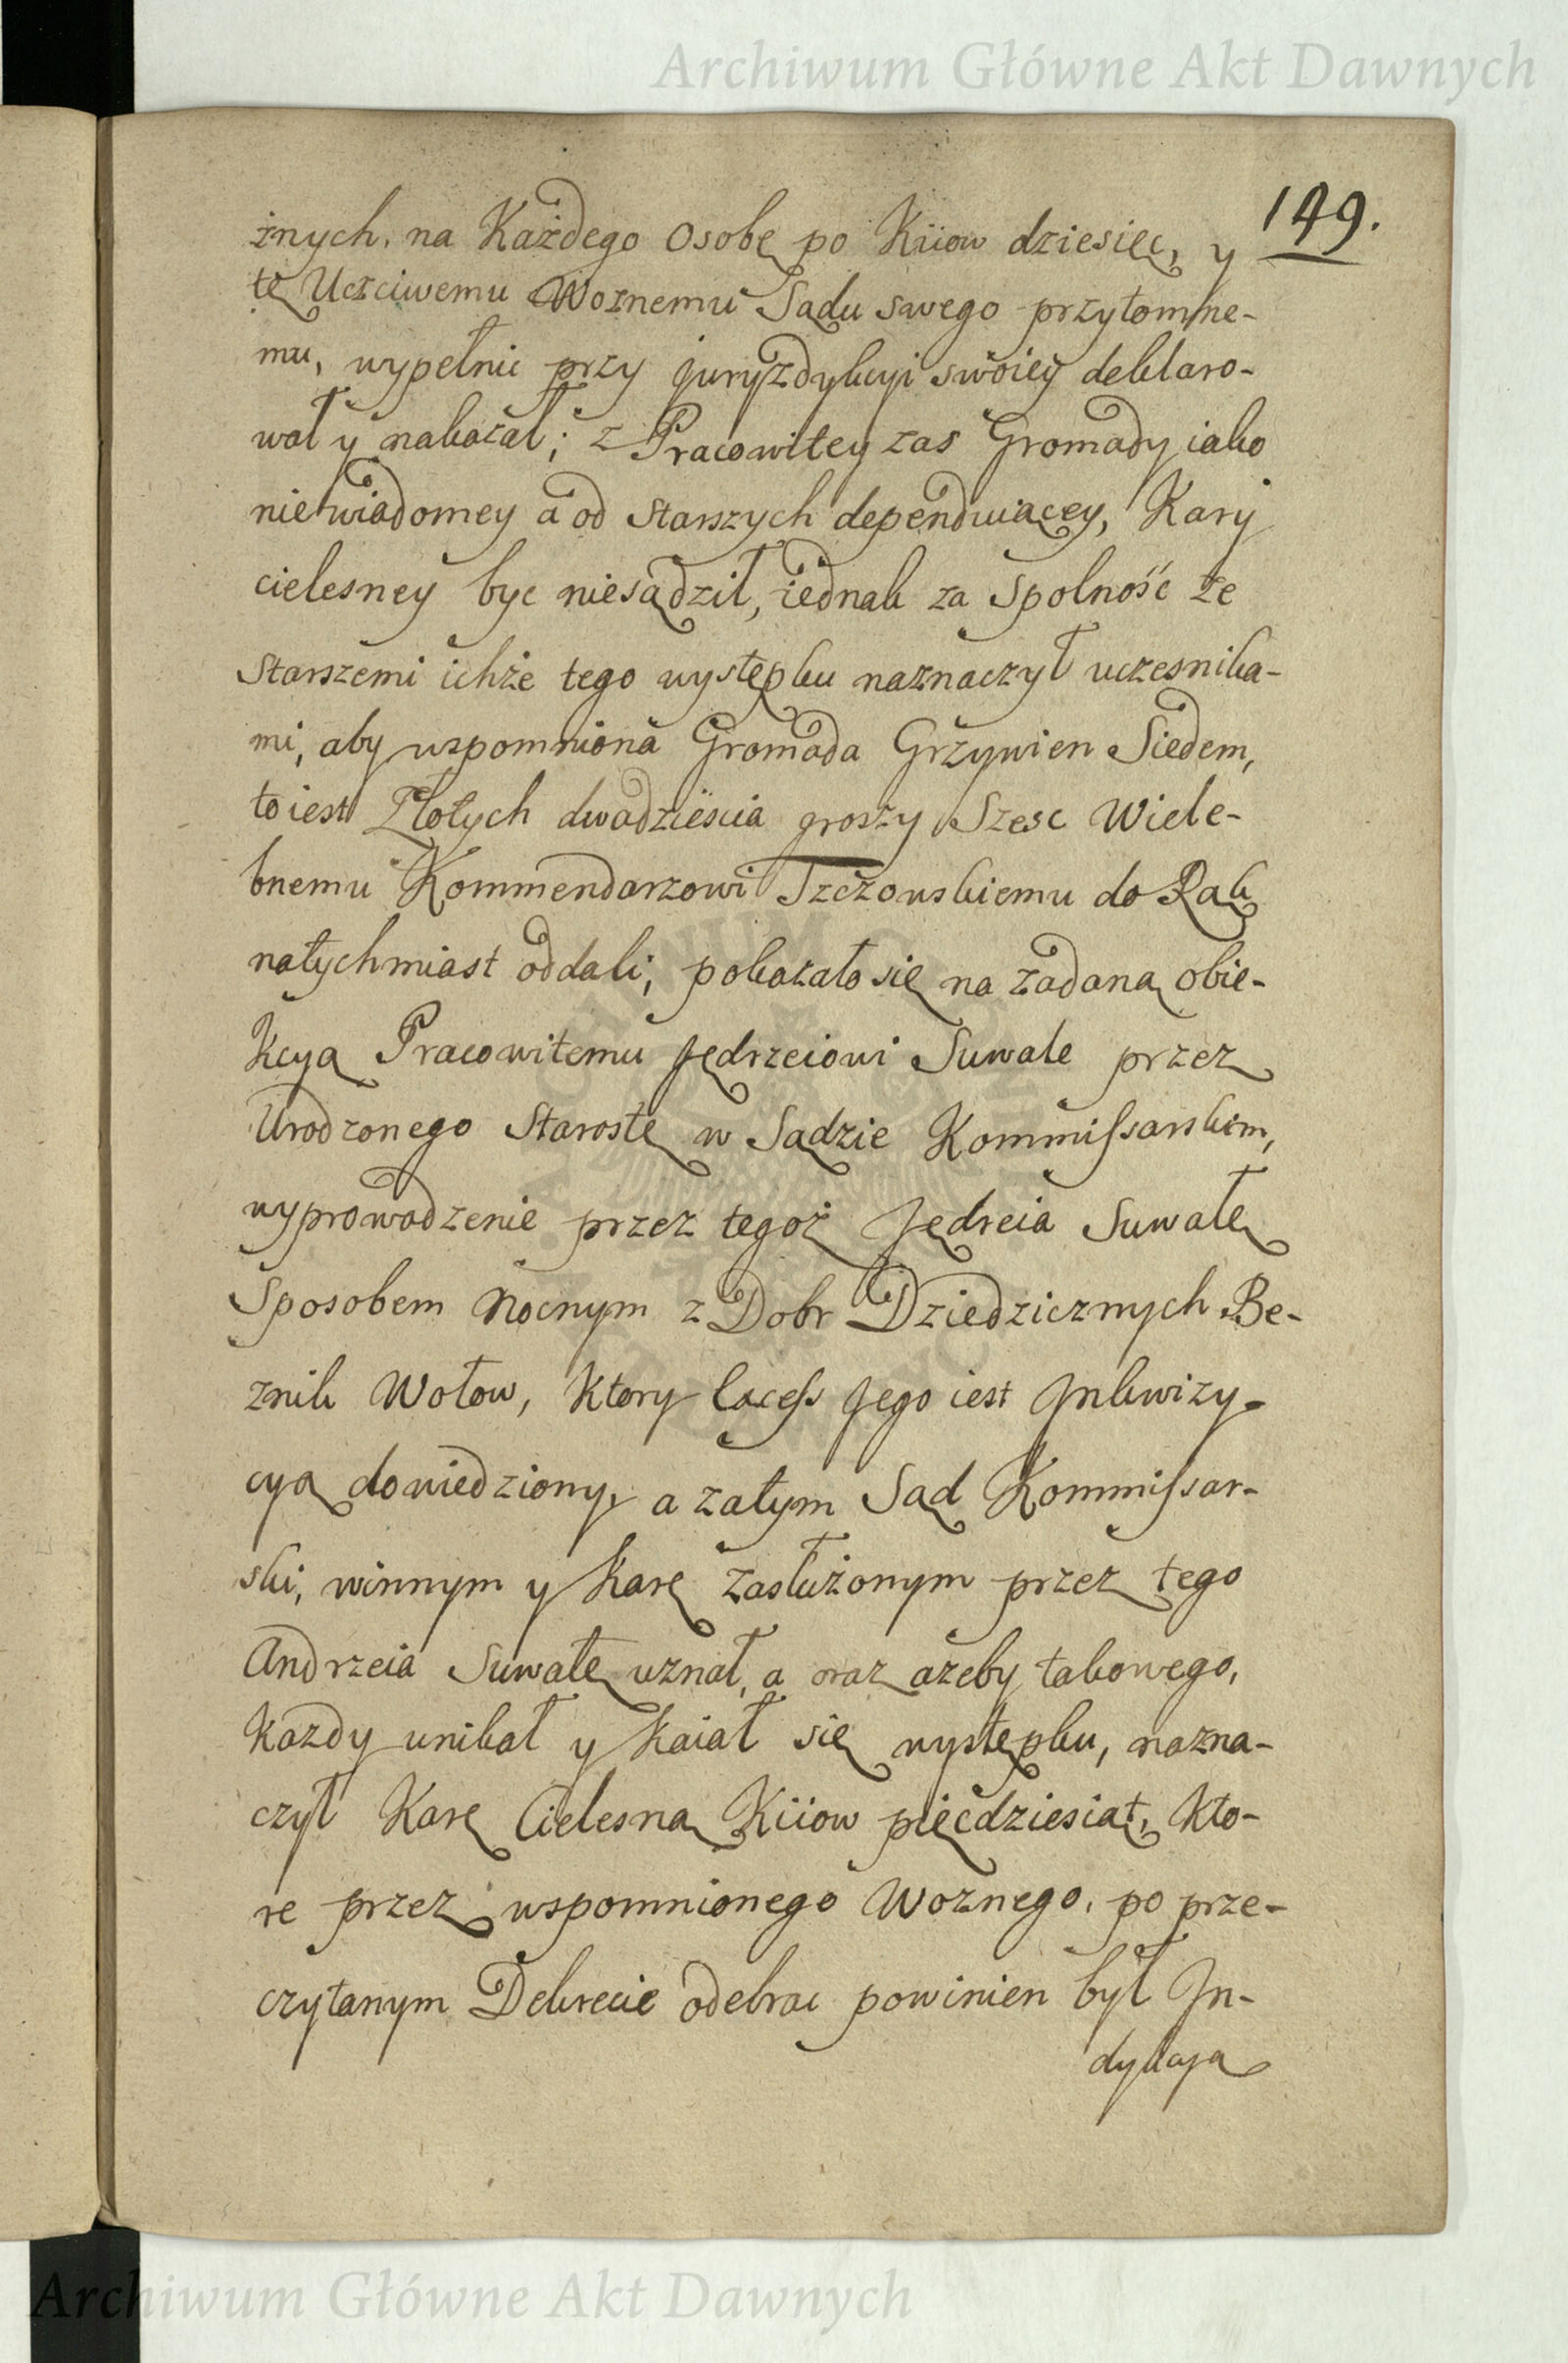 Archiwum Główne Akt Dawnych
149.
żnych, na Każdego Osobę po Kiiow dziesięc, y
tę Uczciwemu Woznemu Sądu swego przytomne-
mu, wypełnic przy juryzdykcyi swoiey deklaro-
wał y nakazał; z Pracowitey zas Gromady iako
niewiadomey a od Starszych dependuiącey, Kary
cielesney byc niesądził, iednak za Spolność ze
Starszemi ichże tego występku naznaczył uczesnika-
mi, aby wspomniona Gromada Grzywien Siedem,
to iest Złotych dwadzieścia groszy Szesc Wiele-
bnemu Kommendarzowi Tczowskiemu do Rąk
natychmiast oddali; pokazało się na zadaną obie-
kcyą Pracowitemu Jędrzeiowi Suwale przez
Urodzonego Starostę w Sądzie Kommissarskim,
wyprowadzenie przez tegoż Jędreia Suwałę
Sposobem Nocnym z Dobr Dziedzicznych Be-
znik Wołow, Ktory Excess Jego iest Jnkwizy-
cyą dowiedziony, a zatym Sąd Kommissar-
ski, winnym y Karę zasłużonym przez tego
Andrzeia Suwałę uznał, a oraz ażeby takowego,
Kazdy unikał y kaiał się występku, nazna-
czył Karę Cielesną Kiiow pięcdziesiąt, Kto-
re przez wspomnionego Woznego, po prze-
czytanym Dekrecie odebrac powinien był Jn-
dykcyą
Archiwum Główne Akt Dawnych